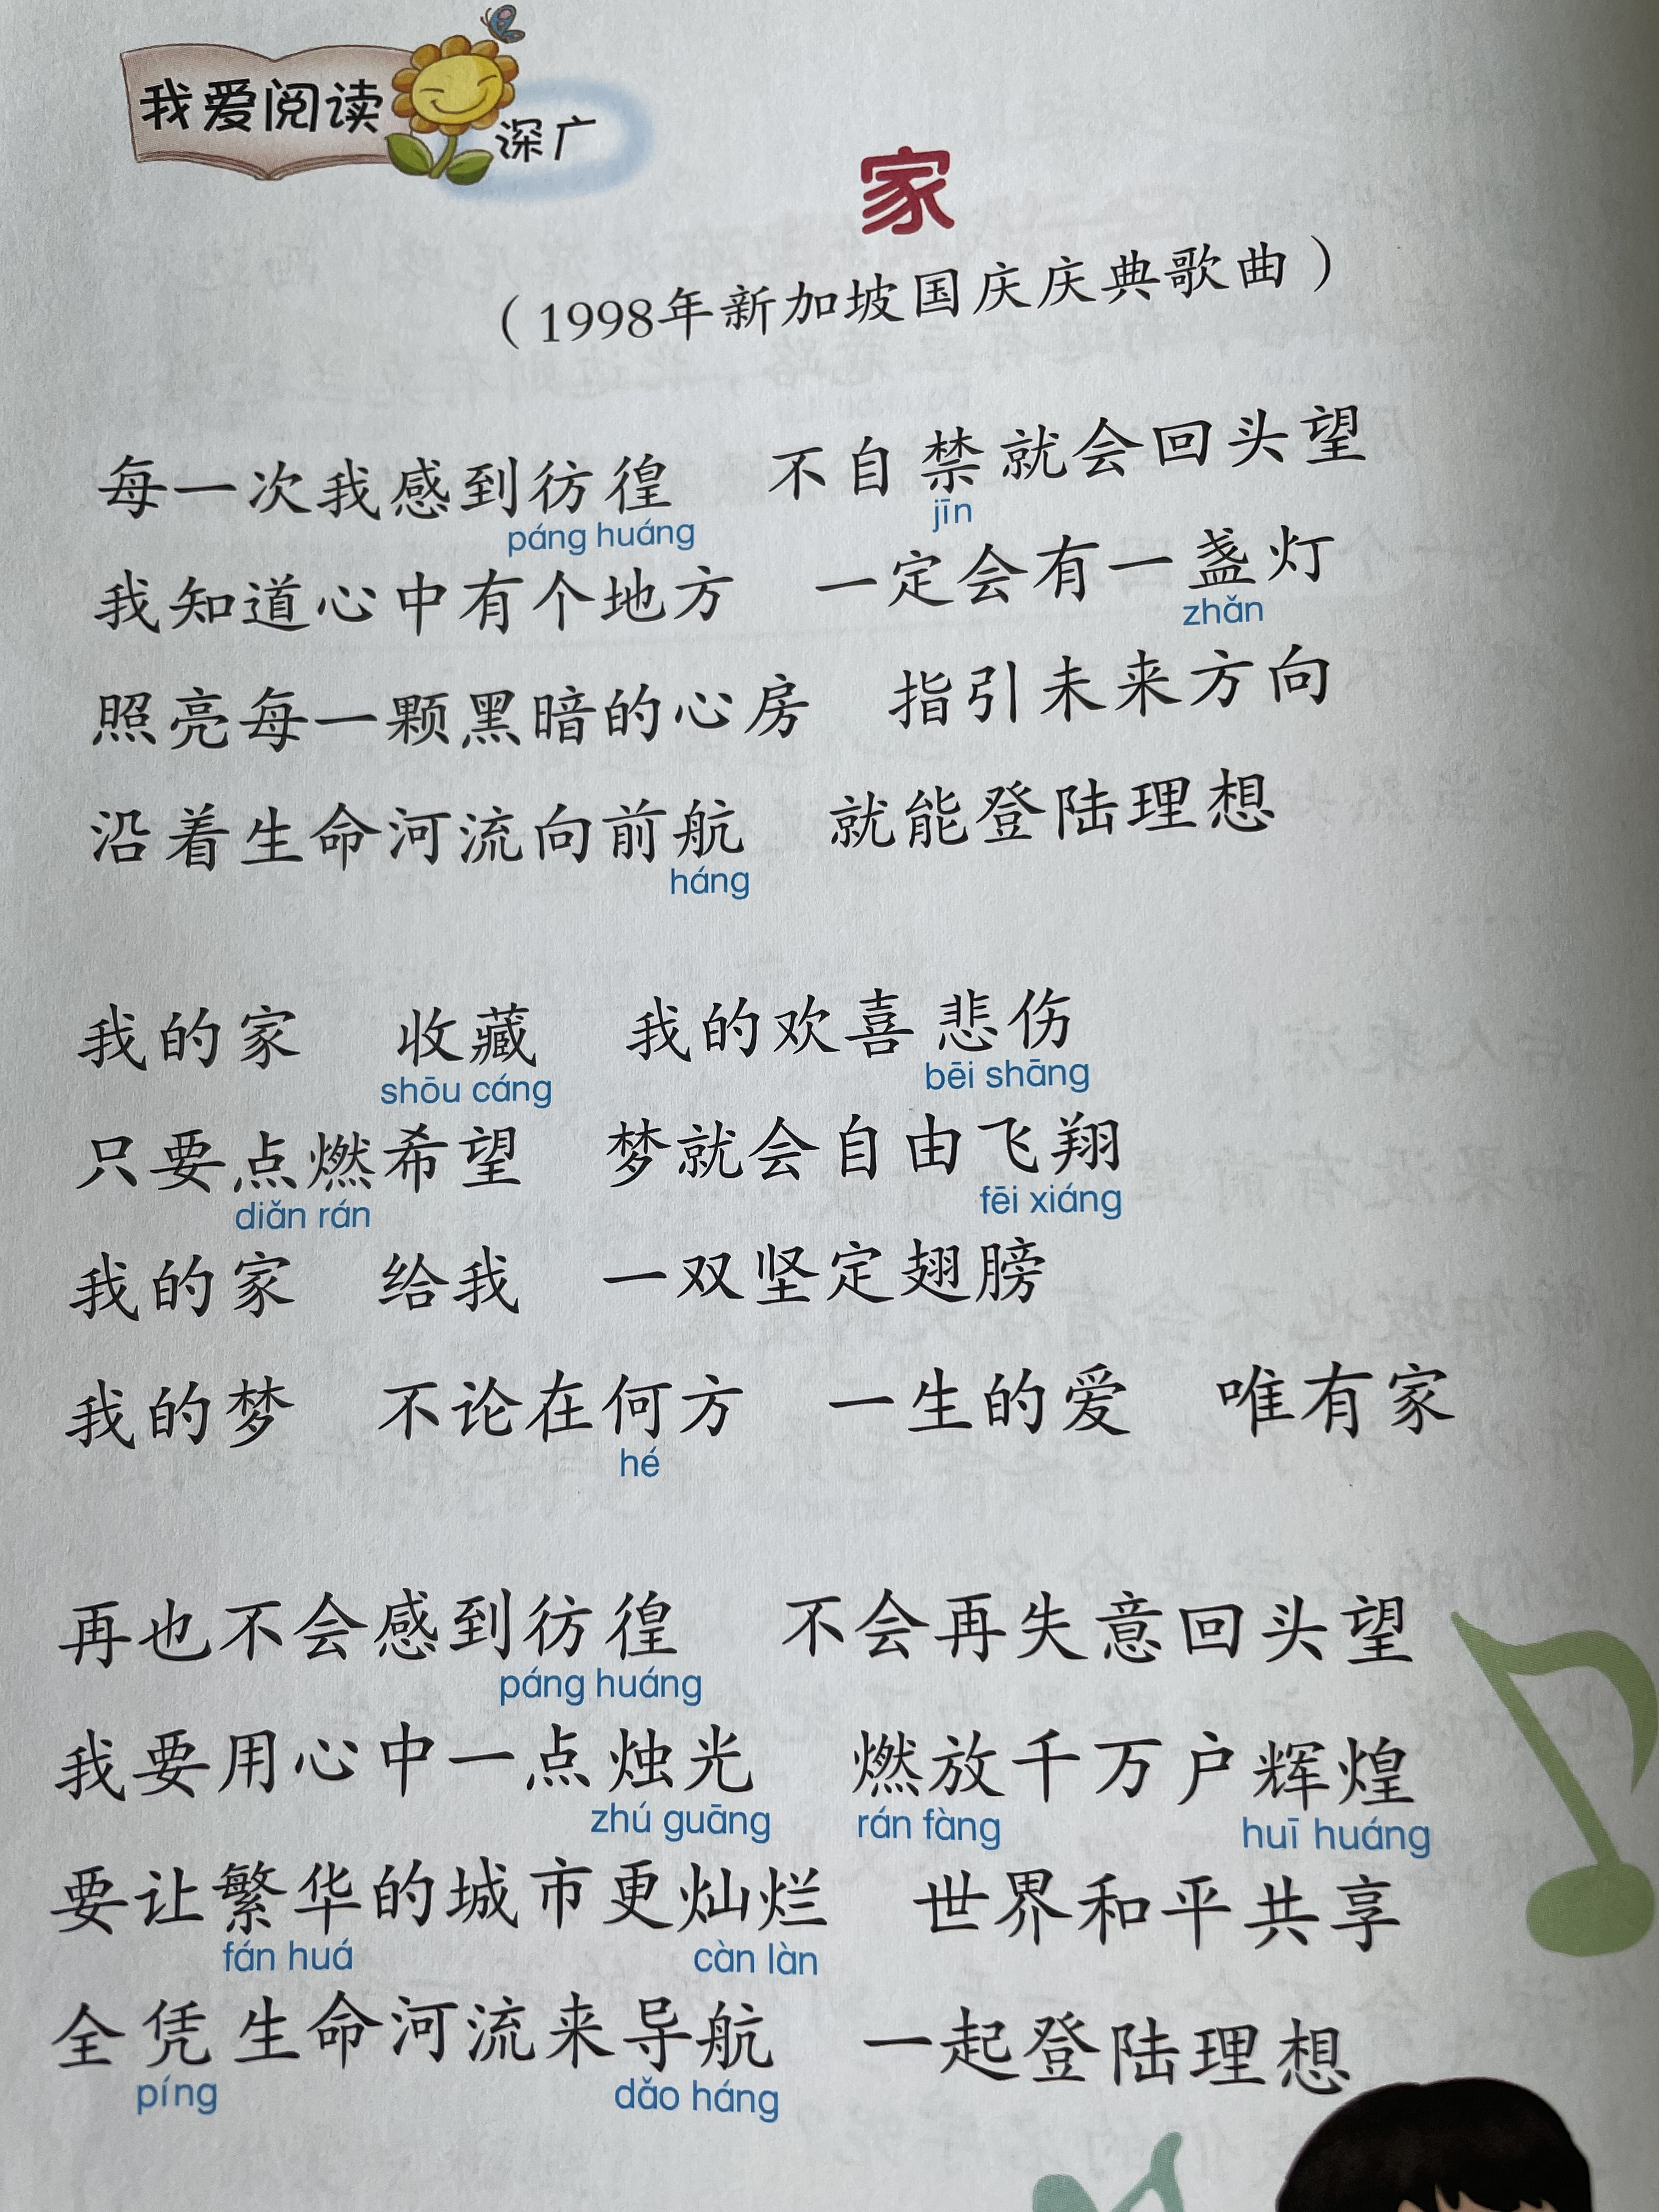 我爱阅读
深广
家
（1998年新加坡国庆庆典歌曲）
每一次我感到彷徨 不自禁就会回头望
páng huáng jīn
我知道心中有个地方 一定会有一盏灯
zhǎn
照亮每一颗黑暗的心房 指引未来方向
沿着生命河流向前航 就能登陆理想
háng
我的家 收藏 我的欢喜悲伤
shōu cáng bēi shāng
只要点燃希望 梦就会自由飞翔
diǎn rán fēi xiáng
我的家 给我 一双坚定翅膀
我的梦 不论在何方 一生的爱 唯有家
hé
再也不会感到彷徨 不会再失意回头望
páng huáng
我要用心中一点烛光 燃放千万户辉煌
zhú guāng rán fàng huī huáng
要让繁华的城市更灿烂 世界和平共享
fán huá càn làn
全凭生命河流来导航 一起登陆理想
píng dǎo háng